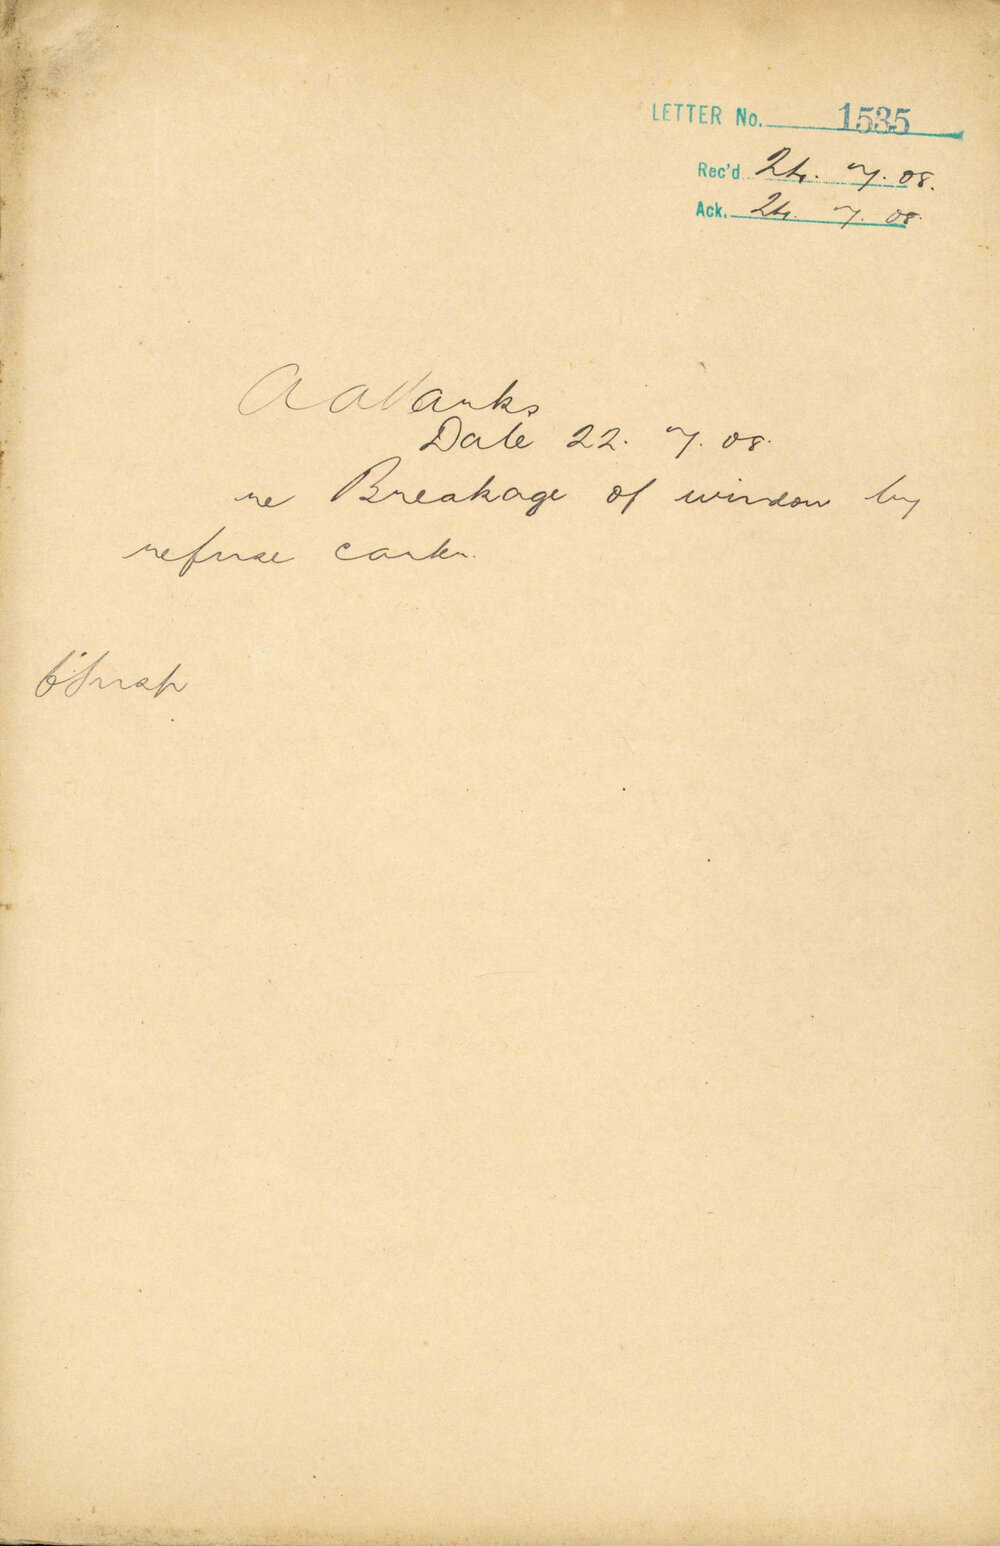 LETTER No. 1535
Rec'd 24. 7. 08.
Ack. 24. 7. 08.
Date 22. 7. 08.
re Breakage of window by
refuse carter.